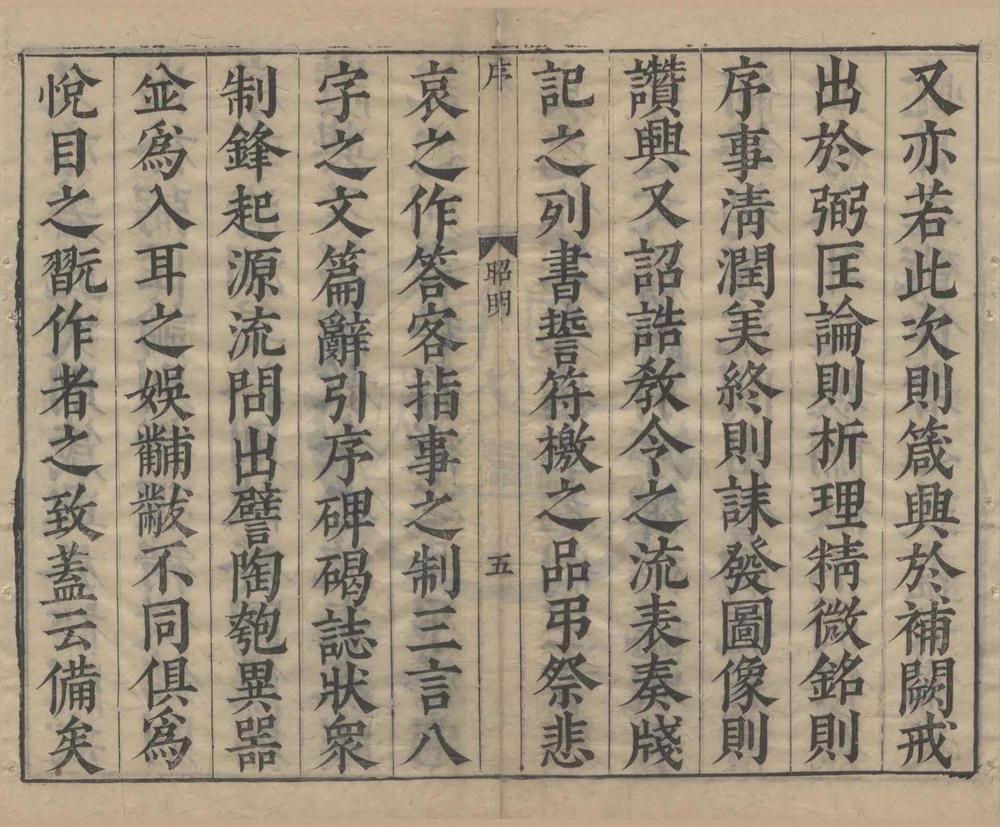 又亦若此次則箴興於補闕戒
出於弼匡論則析理精微銘則
序事清潤美終則誄發圖像則
讚興又詔誥教令之流表奏牋
記之列書誓符檄之品弔祭悲
序
昭明
五
哀之作答客指事之制三言八
字之文篇辭引序碑碣誌狀衆
制鋒起源流間出譬陶匏異器
並為入耳之娛黼黻不同俱為
悅目之翫作者之致蓋云備矣